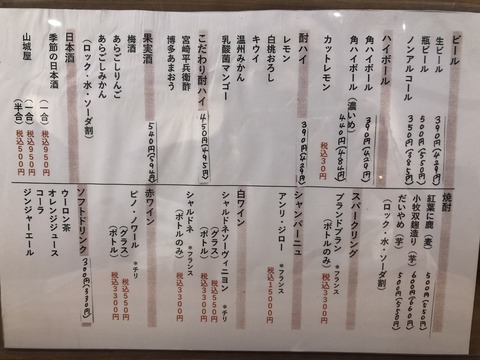 ビール
生ビール 390円(429円)
瓶ビール 500円(550円)
ノンアルコール 350円(385円)
ハイボール
角ハイボール 390円(429円)
角ハイボール(濃いめ) 440円(484円)
カットレモン 税込30円
酎ハイ 390円(429円)
レモン
白桃おろし
キウイ
温州みかん
乳酸菌マンゴー
こだわり酎ハイ 450円(495円)
宮崎平兵衛酢
博多あまおう
果実酒 540円(594円)
梅酒
あらごしりんご
あらごしみかん
(ロック・水・ソーダ割)
日本酒
季節の日本酒 (一合) 税込950円
山城屋 (一合) 税込950円
(半合) 税込500円
焼酎
紅葉に鹿(麦) 500円(550円)
小牧双麹造り(芋) 600円(660円)
だいやめ(芋) 500円(550円)
(ロック・水・ソーダ割)
スパークリング
ブランドブラン *フランス
(ボトルのみ) 税込3300円
シャンパーニュ
アンリ・ジロー *フランス
税込15000円
白ワイン
シャルドネソーヴィニヨン *チリ
(グラス) 税込550円
(ボトル) 税込3300円
シャルドネ *フランス
(ボトルのみ) 税込3300円
赤ワイン
ピノ・ノワール *チリ
(グラス) 税込550円
(ボトル) 税込3300円
ソフトドリンク 300円(330円)
ウーロン茶
オレンジジュース
コーラ
ジンジャーエール